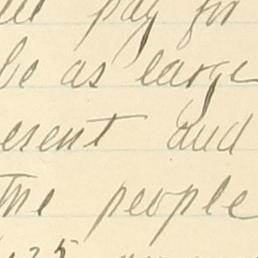 pay for
be as large
esent and
the people